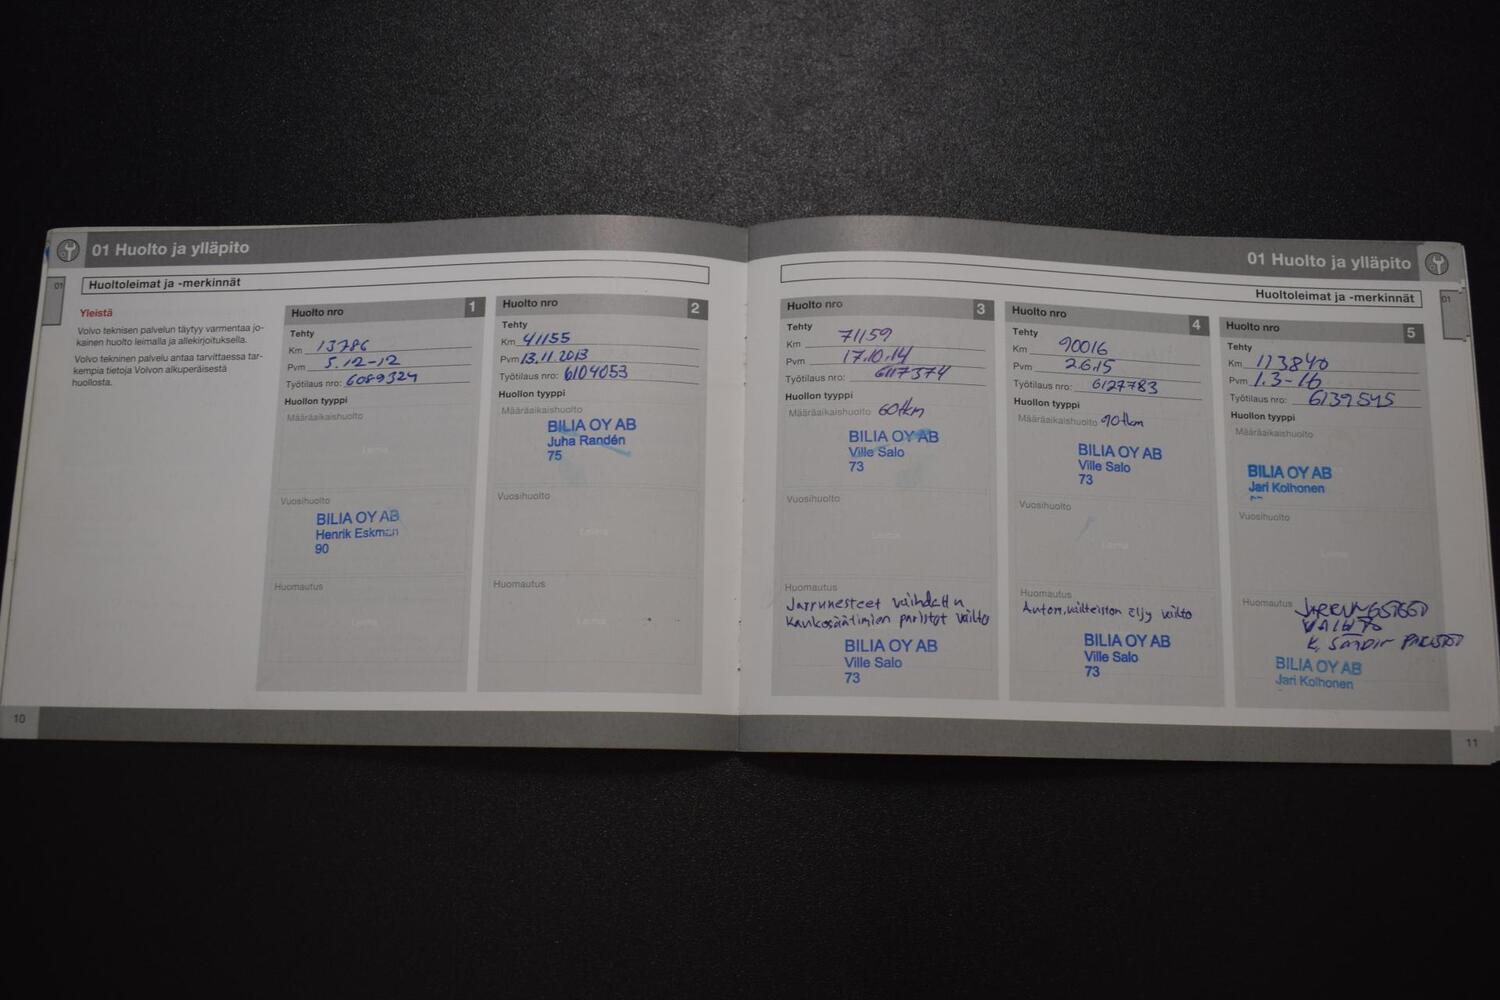 01 Huolto ja ylläpito
01
Huoltoleimat ja -merkinnät
Yleistä
Volvo teknisen palvelun täytyy varmentaa jo-
kainen huolto leimalla ja allekirjoituksella.
Volvo tekninen palvelu antaa tarvittaessa tar-
kempia tietoja Volvon alkuperäisestä
huollosta.
Huolto nro 1
Tehty
Km 13786
Pvm 5.12-12
Työtilaus nro: 6089324
Huollon tyyppi
Määräaikaishuolto
Leima
Vuosihuolto
BILIA OY AB
Henrik Eskman
90
Huomautus
Leima
Huolto nro 2
Tehty
Km 41155
Pvm 13.11.2013
Työtilaus nro: 6104053
Huollon tyyppi
Määräaikaishuolto
BILIA OY AB
Juha Randén
75
Vuosihuolto
Leima
Huomautus
Leima
10
01 Huolto ja ylläpito
Huoltoleimat ja -merkinnät
01
Huolto nro 3
Tehty
Km 71159
Pvm 17.10.14
Työtilaus nro: 6117374
Huollon tyyppi
Määräaikaishuolto 60tkm
BILIA OY AB
Ville Salo
73
Vuosihuolto
Leima
Huomautus
Jarrunesteet vaihdettu
Kaukosäätimien paristot vaihto
BILIA OY AB
Ville Salo
73
Huolto nro 4
Tehty
Km 90016
Pvm 2.6.15
Työtilaus nro: 6127783
Huollon tyyppi
Määräaikaishuolto 90tkm
BILIA OY AB
Ville Salo
73
Vuosihuolto
Leima
Huomautus
Autom.vaihteiston öljy vaihto
BILIA OY AB
Ville Salo
73
Huolto nro 5
Tehty
Km 113840
Pvm 1.3-16
Työtilaus nro: 6139545
Huollon tyyppi
Määräaikaishuolto
BILIA OY AB
Jari Kolhonen
Vuosihuolto
Leima
Huomautus
VAIHTO
BILIA OY AB
Jari Kolhonen
11